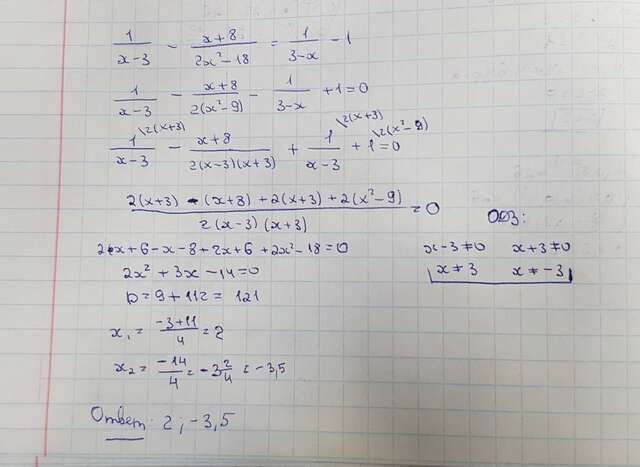 1/(x-3) - (x+8)/(2x²-18) = 1/(3-x) - 1
1/(x-3) - (x+8)/(2(x²-9)) - 1/(3-x) + 1 = 0
1\2(x+3)/(x-3) - (x+8)/(2(x-3)(x+3)) + 1\2(x+3)/(x-3) + 1\2(x²-9) = 0
(2(x+3) - (x+8) + 2(x+3) + 2(x²-9))/(2(x-3)(x+3)) = 0
ОДЗ:
x-3≠0 x+3≠0
x≠3 x≠-3
2x+6-x-8+2x+6+2x²-18=0
2x²+3x-14=0
D=9+112=121
x₁= (-3+11)/4 = 2
x₂= -14/4 = -3 2/4 = -3,5
Ответ: 2; -3,5